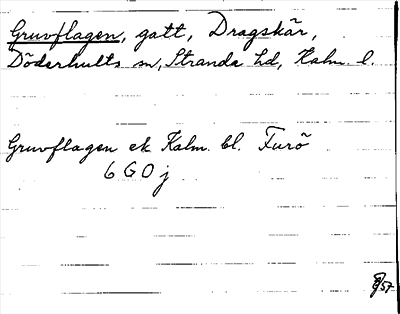 Gruvflagen, gatt, Dragskär,
Döderhults sn, Stranda hd, Kalm. l.
Gruvflagen ek Kalm. bl. Furö
6 G 0 j
/57